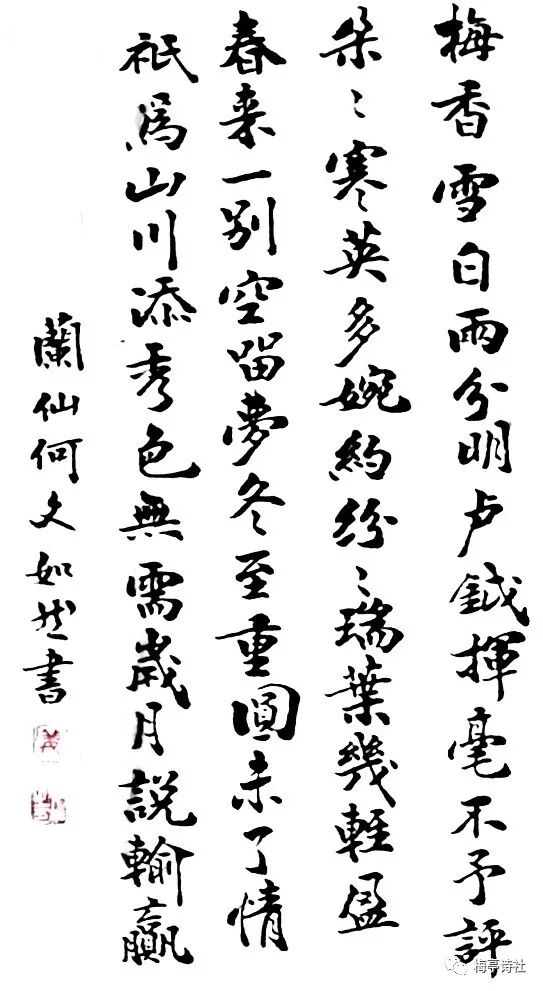 梅香雪白兩分明卢鉞揮毫不予評
朵〻寒英多婉約紛〻瑞葉幾輕盈
春来一别空留夢冬至重圓未了情
祇爲山川添秀色無需歲月説輸贏
蘭仙何文如然書
梅亭诗社